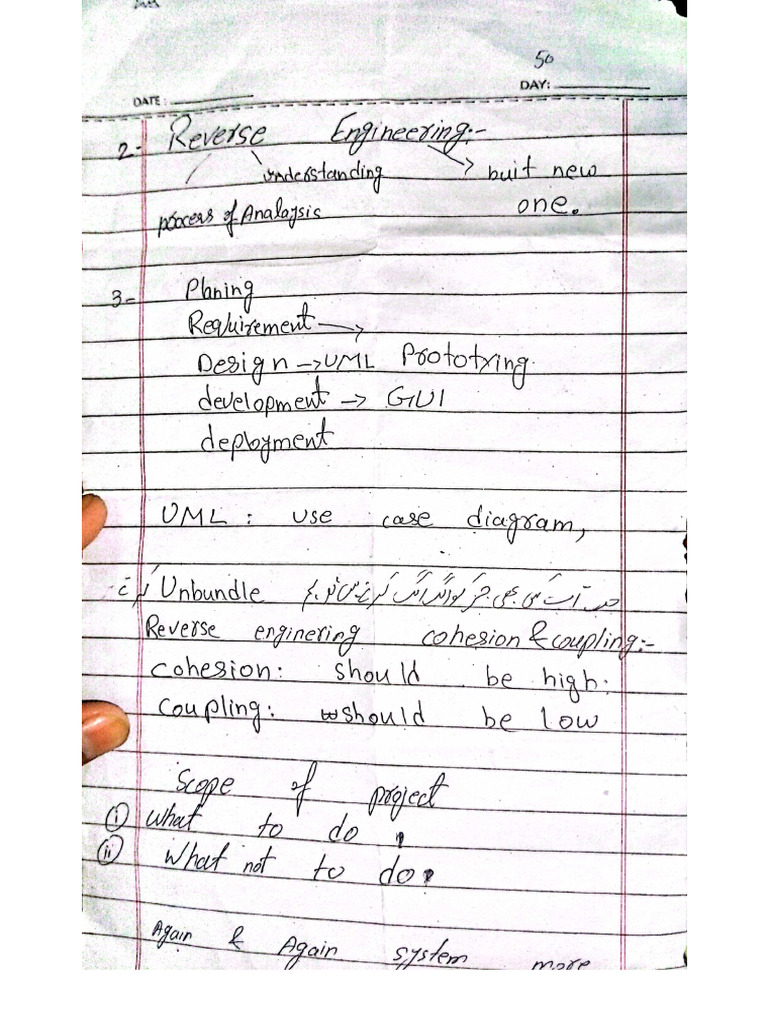 50
DATE: DAY:
2- Reverse Engineering:-
understanding buit new
process of Analaysis one.
3- Planing
Requirement →
Design → UML Prototxing.
development → GUI
deployment
UML: use case diagram,
Unbundle
Reverse enginering cohesion & coupling:-
cohesion: should be high:
coupling: should be low
Scope of project
(i) what to do.
(ii) What not to do.
Again & Again system more